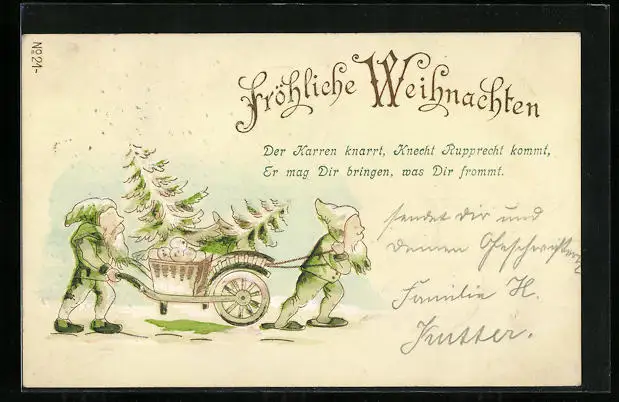 No 21-
Fröhliche Weihnachten
Der Karren knarrt, Knecht Rupprecht kommt,
Er mag Dir bringen, was Dir frommt.
sendet dir und
deinen Geschwistern
Familie H.
Kutter.